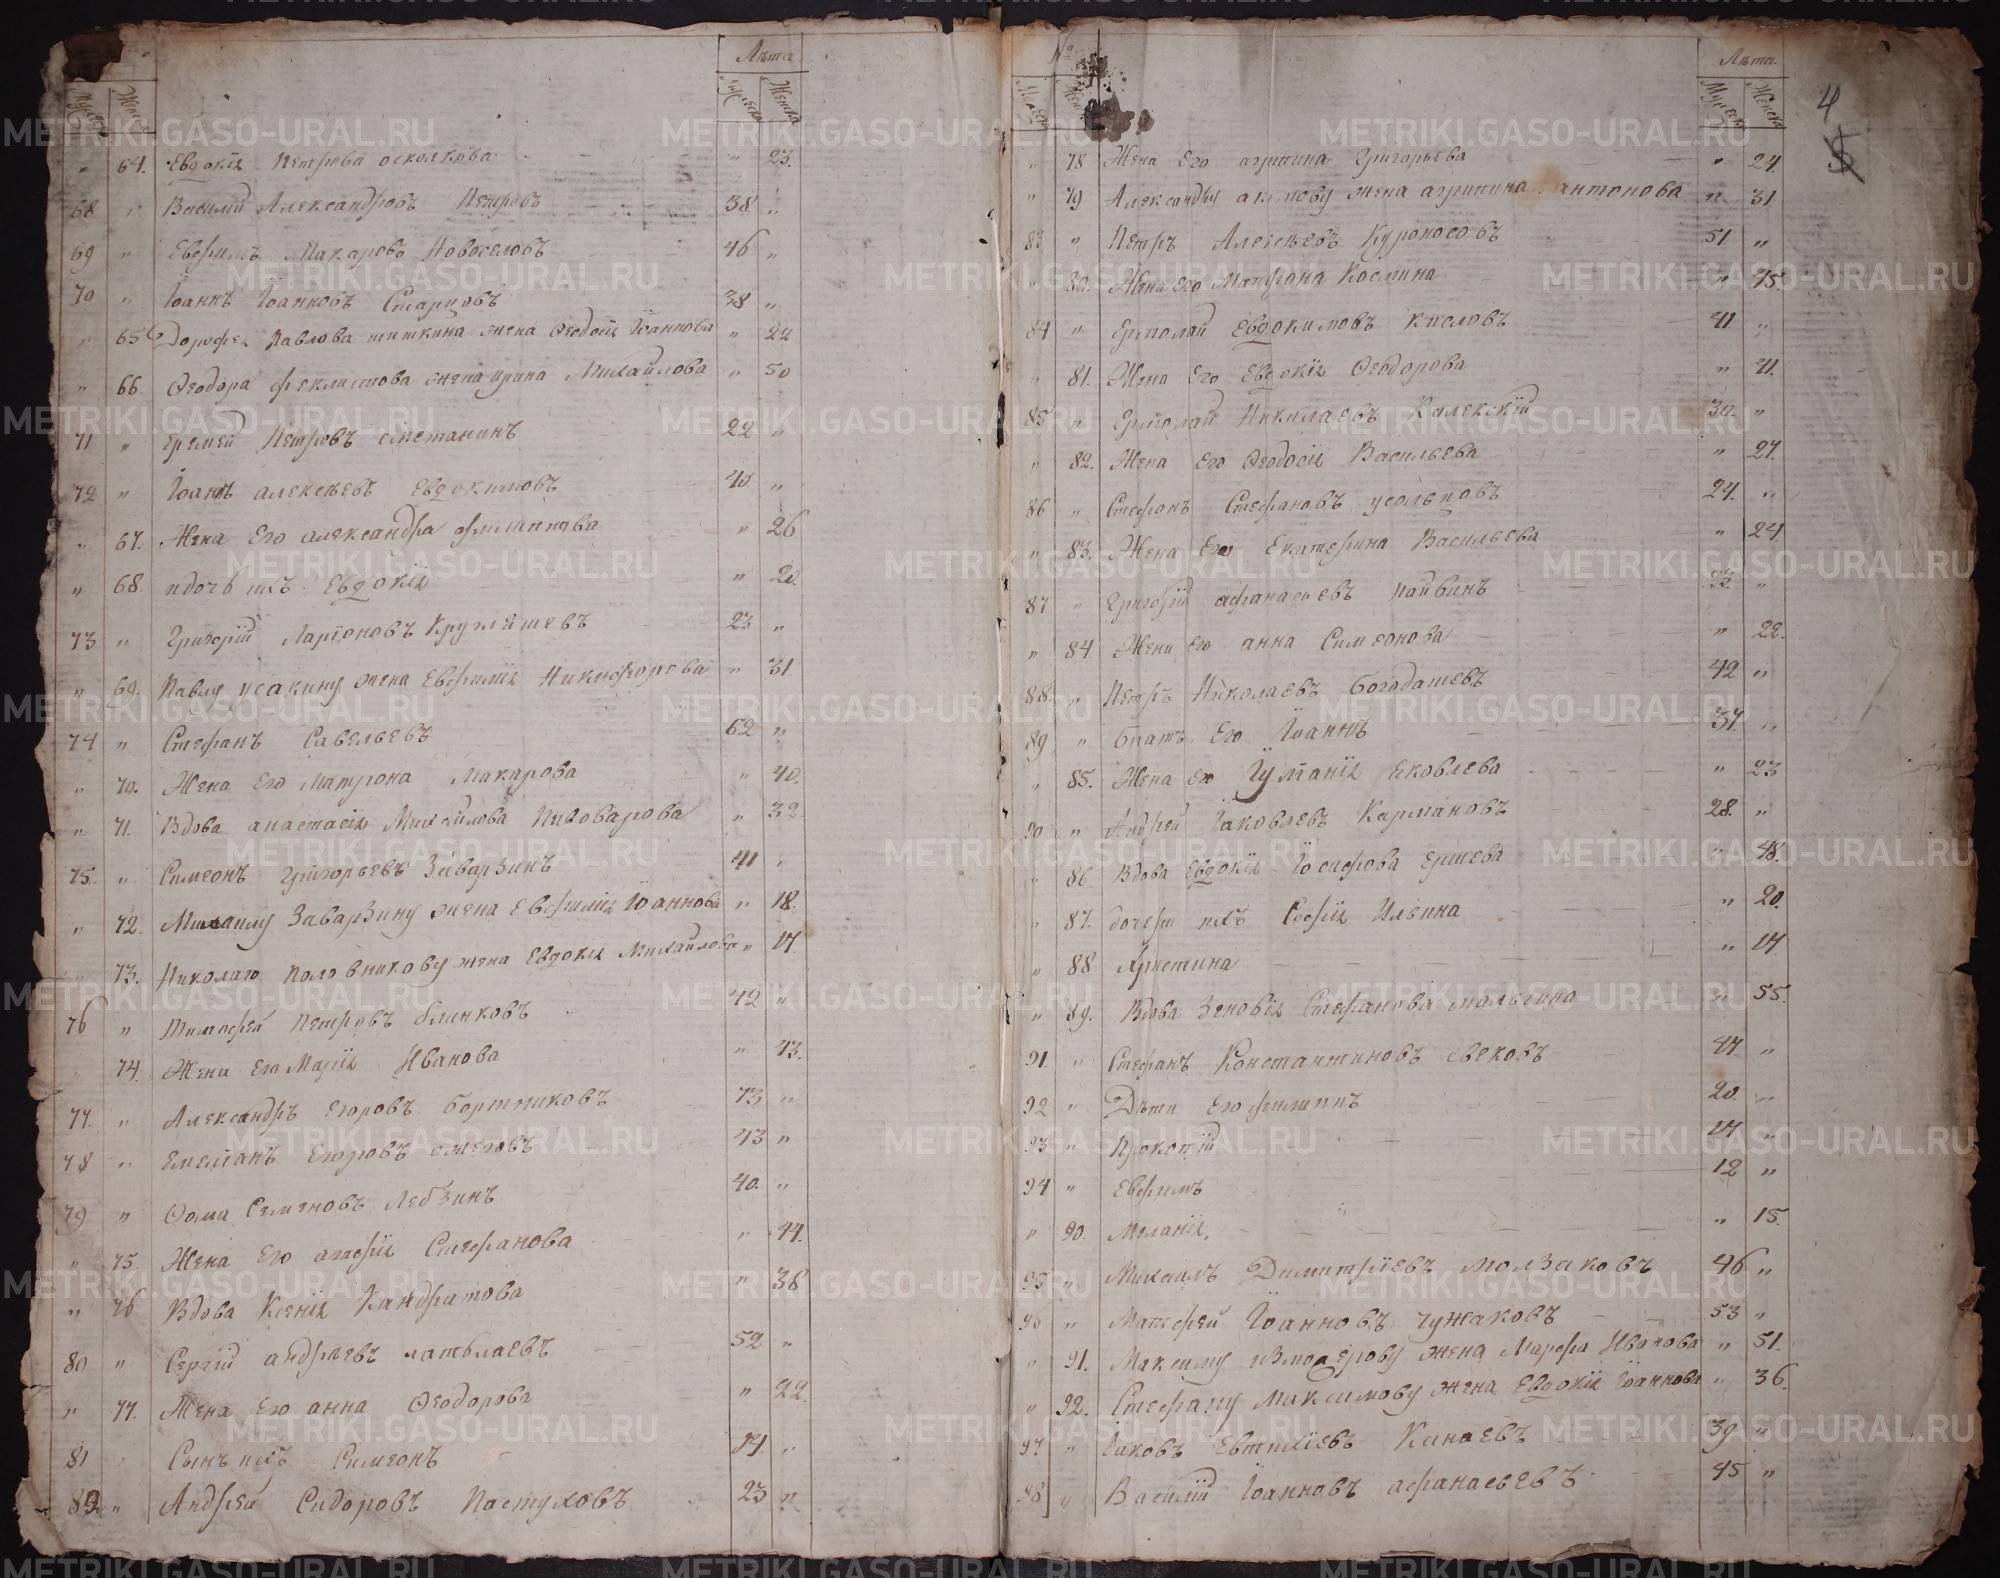 Лѣта
Мужеска Женска Мужеска Женска
" 64. Евдокія Петрова осколкова " 23.
68 " Василій Александровъ Петровъ 38 "
69 " Евфимъ Макаровъ Новоселовъ 46 "
70 " Іоаннъ Іоанновъ Старцовъ 38 "
" 65 Дорофея Павлова титкина жена Ѳеодосія Іоаннова " 22
" 66. Ѳеодора феклистова жена ирина Михайлова " 50
71 " еремей Петровъ сметанинъ 22 "
72 " Іоаннъ алексѣевъ Евдокимовъ 40. "
" 67. Жена Его александра филиппова " 26
" 68. идочь ихъ Евдокія " 20.
73 " Григорій Ларіоновъ Кругляшевъ 23 "
" 69. Павлу усакину жена Евфимія Никифорова " 31
74 " Стефанъ Савельевъ 62 "
" 70. Жена Его Матрона Макарова " 40.
" 71. Вдова анастасія Михайлова Пивоварова " 32.
75. " Симеонъ григорьевъ Заварзинъ 41 "
" 72. Михаилу Заварзину жена евфимія Іоаннова " 18.
" 73. Николаю половникову жена Евдокія Михайлова " 17
76 " Тимофей Петровъ блинковъ 42 "
74. Жена Его Марія Иванова " 43.
77. " Александръ Егоровъ бортниковъ 73 "
78 " емелианъ Егоровъ ожеговъ 43 "
79 " Ѳома Семеновъ Лебзинъ 40. "
" 75. Жена Его агафія Стефанова " 44.
" 76 Вдова Ксенія Кандратова " 38
80 " Сергій андреевъ латылаевъ 52 "
" 77. Жена Его анна Ѳеодорова " 22.
81 " Сынъ ихъ Симеонъ "
82 " Андрей Сидоровъ Пастуховъ 23 "
№ Лѣта
Мужеска Женска Мужеска Женска
4
" 78 Жена Его агрипина Григорьева " 24.
" 79 Александру акимову жена агрипина антонова " 31
83 " Петръ Алексѣевъ Куроносовъ 51 "
" 80. Жена его Матрона Космина " 45.
84 " Ермолай Евдокимовъ кисловъ 41. "
" 81. Жена Его Евдокія Ѳеодорова " 41.
85 " Ермолай Николаевъ Калекскій 30. "
" 82. Жена Его Ѳеодосія Васильева " 27.
86 " Стефанъ Стефановъ усольцовъ 24. "
" 83. Жена Его Екатерина Васильева " 24
87 " Григорій афанасьевъ пайвинъ "
" 84 Жена Его анна Симеонова " 22.
88. " Петръ Николаевъ богодашевъ 42 "
89 " братъ Его Іоаннъ 37. "
" 85. Жена Его Іуліанія яковлева " 23
90 " Андрей Іаковлевъ Кармановъ 28. "
" 86 Вдова Евдокія Іосифова ершева " 48.
" 87. дочери ихъ Софія Ильина " 20.
" 88 Христина " 17
" 89. Вдова Зеновія Стефанова мальгина " 55.
91. " Стефанъ Константиновъ свековъ 47. "
92 " Дѣти Его филиппъ 20. "
93 " Прокопій 17 "
94 " Евфимъ 12 "
" 90. Меланія. " 15.
95 " Михаилъ Димитріевъ молзаковъ 46 "
96 " Матфей Іоанновъ чужаковъ 53 "
" 91. Максиму измодерову жена Марфа Иванова " 51.
" 92. Стефану Максимову жена Евдокія Іоаннова " 36.
97. " Іаковъ Евтихіевъ Канаевъ 39 "
98 " Василій Іоанновъ афанасьевъ 45 "